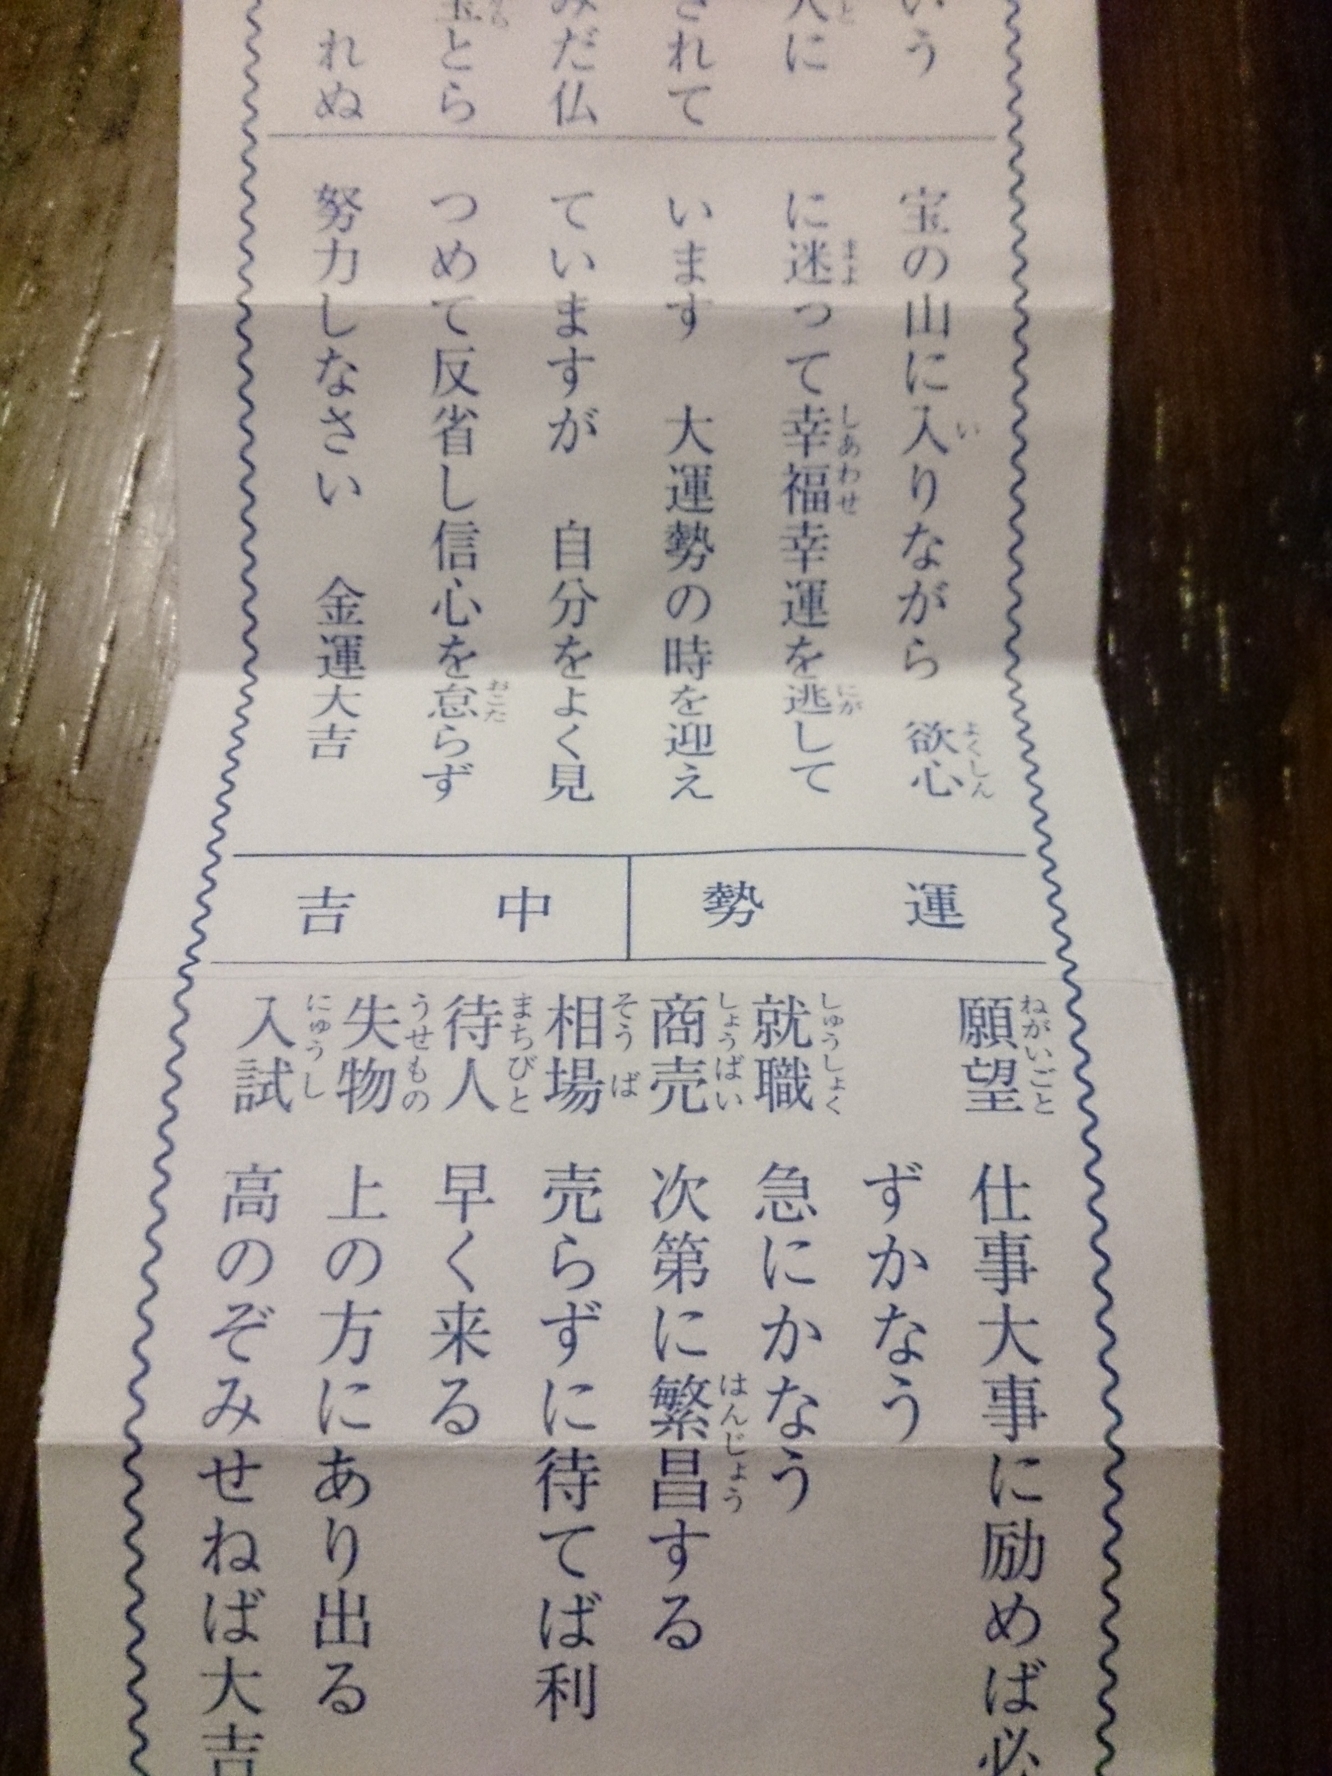 いう
人に
されて
みだ仏
宝とら
れぬ
宝の山に入りながら　欲心
に迷って幸福幸運を逃して
います　大運勢の時を迎え
ていますが　自分をよく見
つめて反省し信心を怠らず
努力しなさい　金運大吉
運勢
中吉
願望　仕事大事に励めば必
ずかなう
就職　急にかなう
商売　次第に繁昌する
相場　売らずに待てば利
待人　早く来る
失物　上の方にあり出る
入試　高のぞみせねば大吉